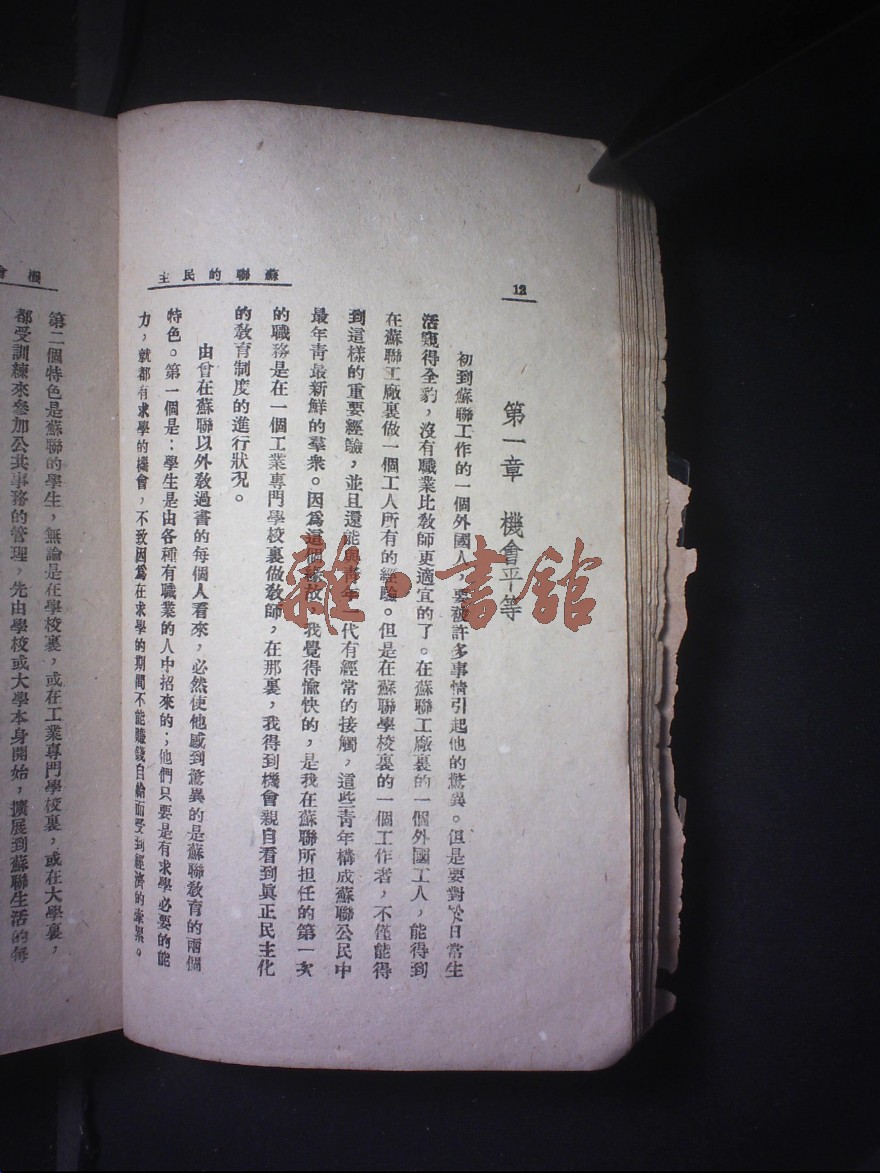 12
蘇聯的民主
第一章　機會平等
初到蘇聯工作的一個外國人，要被許多事情引起他的驚異。但是要對於日常生
活窺得全豹，沒有職業比教師更適宜的了。在蘇聯工廠裏的一個外國工人，能得到
在蘇聯工廠裏做一個工人所有的經驗。但是在蘇聯學校裏的一個工作者，不僅能得
到這樣的重要經驗，並且還能與青年一代有經常的接觸，這些青年構成蘇聯公民中
最年青最新鮮的羣衆。因爲這個緣故，我覺得愉快的，是我在蘇聯所担任的第一次
的職務是在一個工業專門學校裏做教師，在那裏，我得到機會親自看到眞正民主化
的教育制度的進行狀况。
由曾在蘇聯以外教過書的每個人看來，必然使他感到驚異的是蘇聯教育的兩個
特色。第一個是：學生是由各種有職業的人中招來的；他們只要是有求學必要的能
力，就都有求學的機會，不致因爲在求學的期間不能賺錢自給而受到經濟的牽累。
機會
第二個特色是蘇聯的學生，無論是在學校裏，或在工業專門學校裏，或在大學裏，
都受訓練來參加公共事務的管理，先由學校或大學本身開始，擴展到蘇聯生活的每
雜·書館